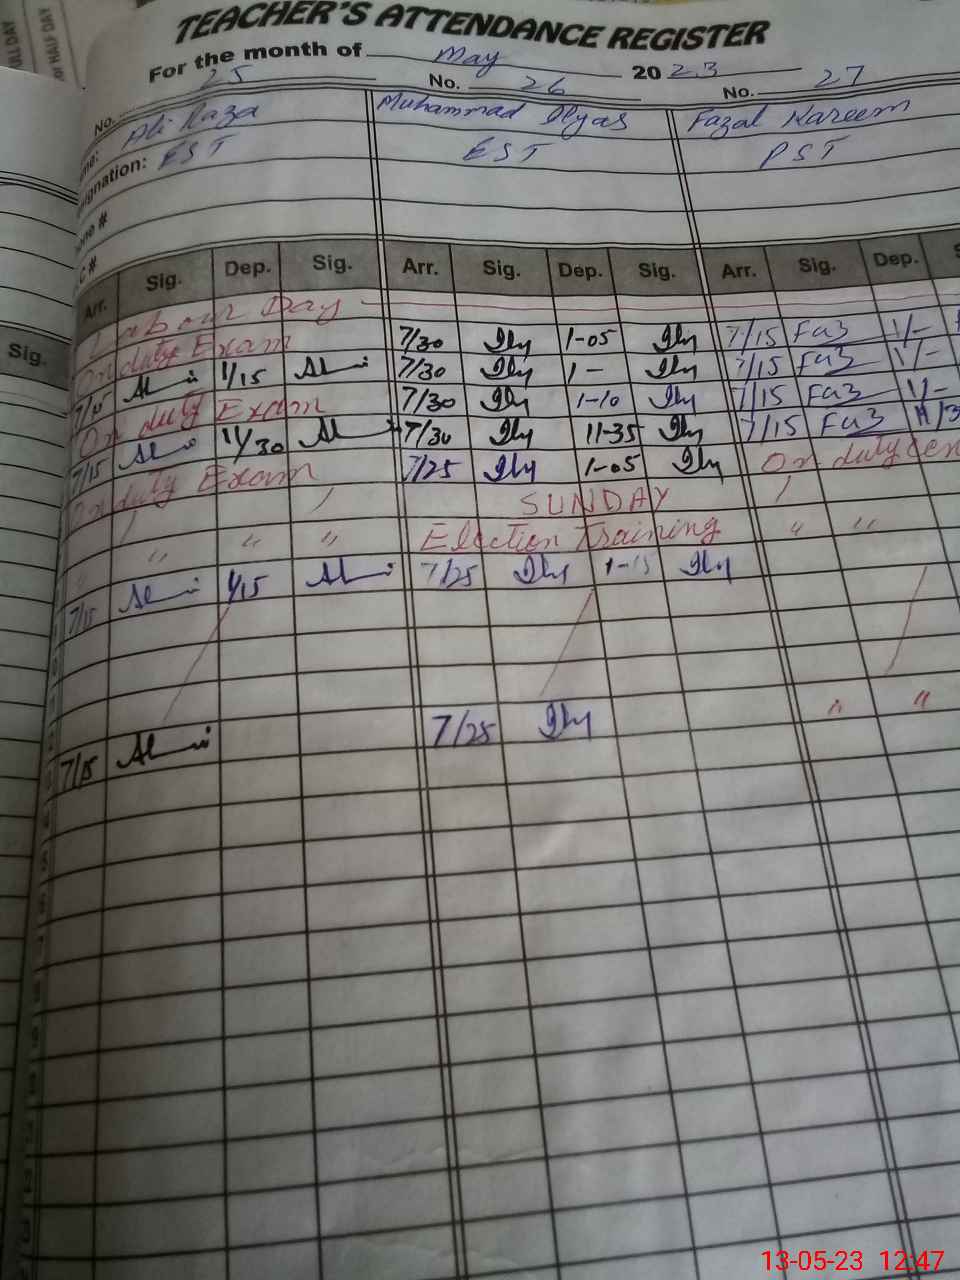 ULL DAY
or HALF DAY
TEACHER'S ATTENDANCE REGISTER
For the month of May 2023
No. 25 No. 26 No. 27
Ali Raza Muhammad Ilyas Fazal Kareem
ignation: EST EST PST
Sig.
Arr. Sig. Dep. Sig. Arr. Sig. Dep. Sig. Arr. Sig. Dep. S
Labour Day
On duty Exam 7/30 Ily 1-05 Ily 7/15 Faz 1/-
7/15 Ali 1/15 Ali 7/30 Ily 1- Ily 7/15 Faz 1/-
On duty Exam 7/30 Ily 1-10 Ily 7/15 Faz 1/-
7/15 Ali 11/30 Ali 7/30 Ily 11-35 Ily 7/15 Faz 11/3
On duty Exam 7/25 Ily 1-05 Ily On duty cen
SUNDAY
" " " Election Training " "
7/15 Ali 1/15 Ali 7/25 Ily 1-15 Ily
7/15 Ali 7/25 Ily " "
13-05-23 12:47